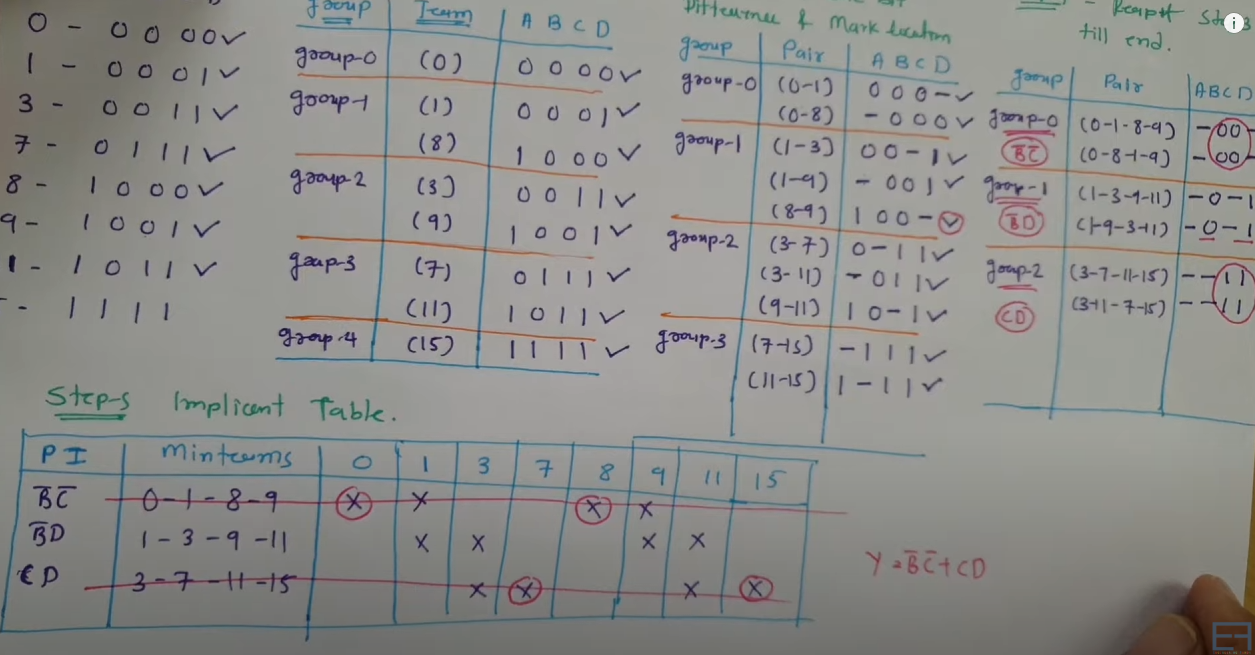 0 - 0 0 0 0 ✓
1 - 0 0 0 1 ✓
3 - 0 0 1 1 ✓
7 - 0 1 1 1 ✓
8 - 1 0 0 0 ✓
9 - 1 0 0 1 ✓
1 - 1 0 1 1 ✓
- 1 1 1 1
group Team A B C D
group-0 (0) 0 0 0 0 ✓
group-1 (1) 0 0 0 1 ✓
(8) 1 0 0 0 ✓
group-2 (3) 0 0 1 1 ✓
(9) 1 0 0 1 ✓
group-3 (7) 0 1 1 1 ✓
(11) 1 0 1 1 ✓
group-4 (15) 1 1 1 1 ✓
& Mark location
group Pair A B C D
group-0 (0-1) 0 0 0 - ✓
(0-8) - 0 0 0 ✓
group-1 (1-3) 0 0 - 1 ✓
(1-9) - 0 0 1 ✓
(8-9) 1 0 0 - ✓
group-2 (3-7) 0 - 1 1 ✓
(3-11) - 0 1 1 ✓
(9-11) 1 0 - 1 ✓
group-3 (7-15) - 1 1 1 ✓
(11-15) 1 - 1 1 ✓
till end.
group Pair A B C D
group-0 (0-1-8-9) - 0 0 -
B̅C̅ (0-8-1-9) - 0 0 -
group-1 (1-3-9-11) - 0 - 1
B̅D (1-9-3-11) - 0 - 1
group-2 (3-7-11-15) - - 1 1
CD (3-11-7-15) - - 1 1
Step-5 Implicent Table.
PI Minterms 0 1 3 7 8 9 11 15
B̅C̅ 0-1-8-9 x x x x
B̅D 1-3-9-11 x x x x
CD 3-7-11-15 x x x x
Y = B̅C̅ + CD